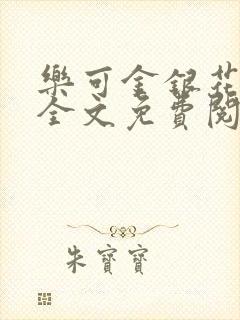 樂可金銀花
全文免費閱
朱寶寶